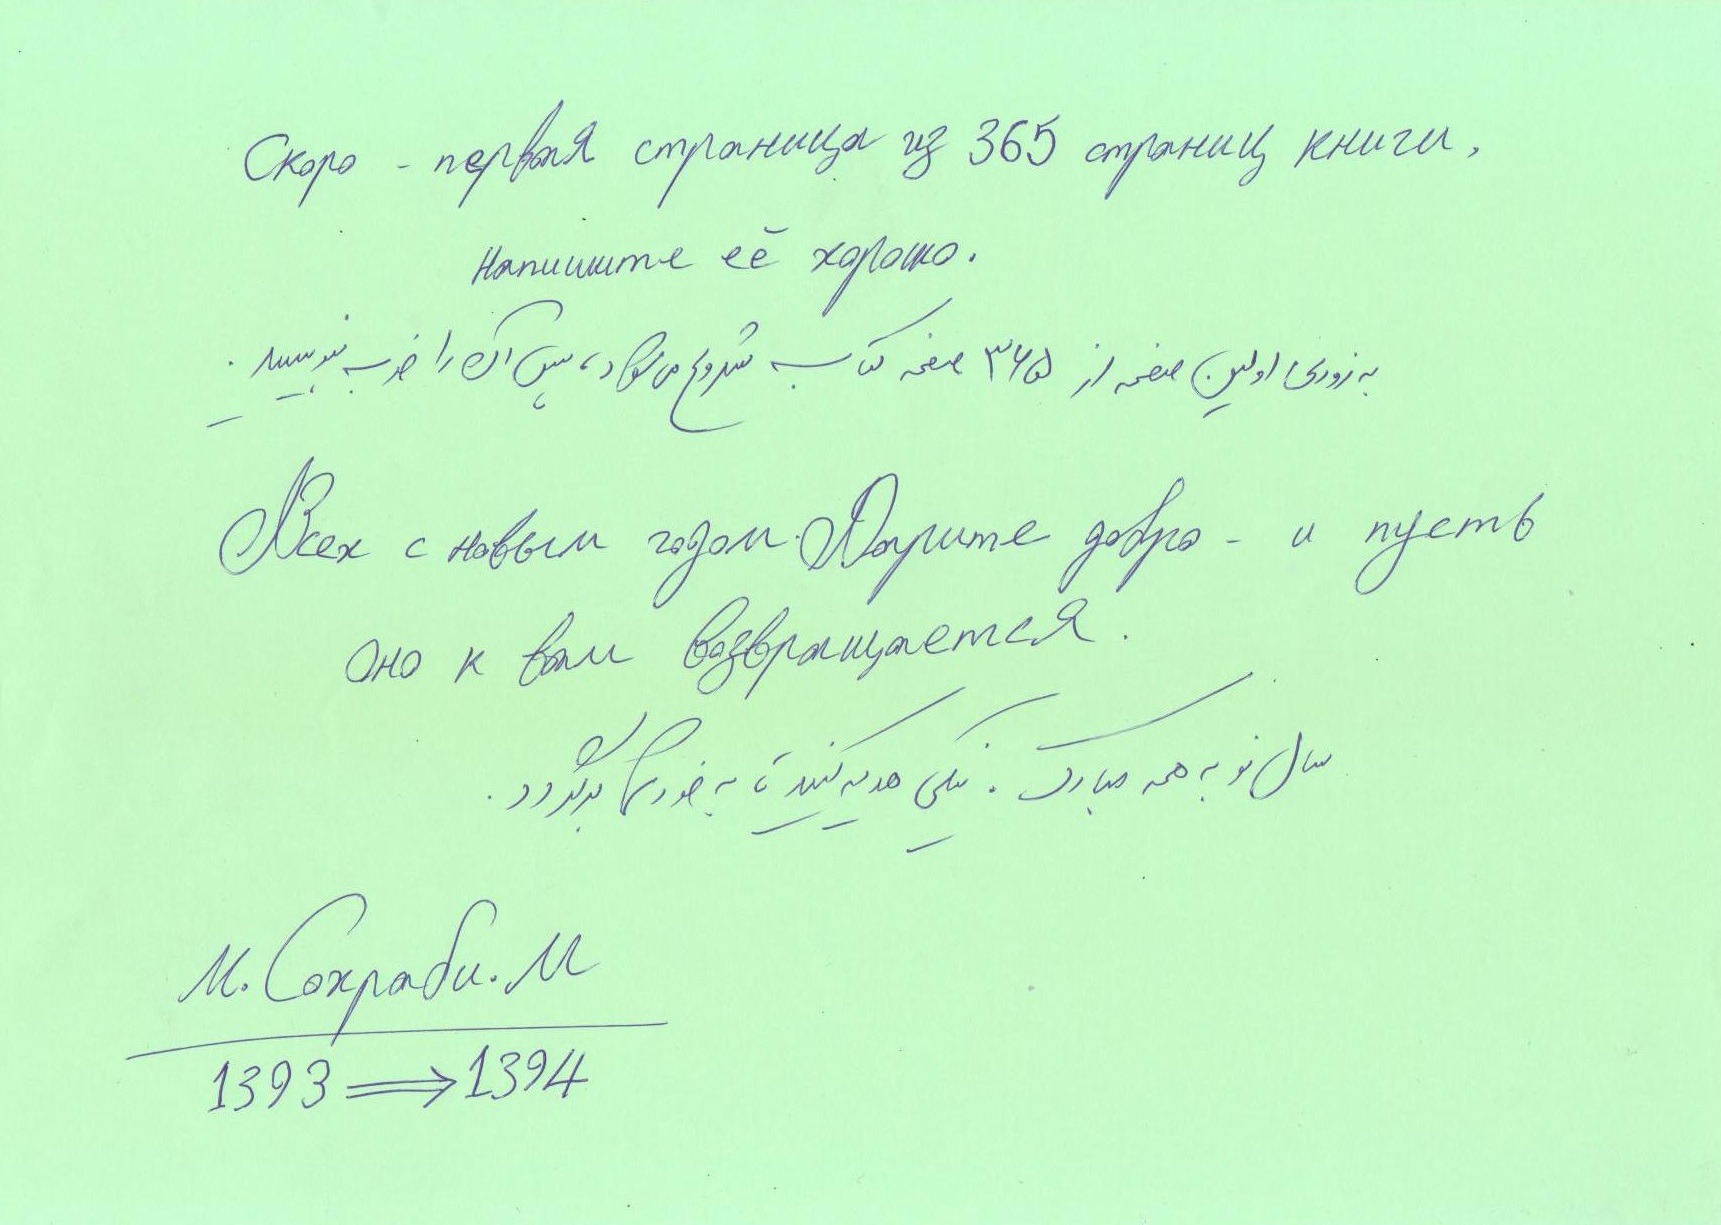 Скоро - первая страница из 365 страниц книги,
напишите её хорошо.
به زودی اولین صفحه از ۳۶۵ صفحه کتاب شروع می شود، پس آن را خوب بنویسید.
Всех с новым годом. Дарите добро - и пусть
оно к вам возвращается.
سال نو به همه مبارک. نیکی هدیه کنید تا به خود شما برگردد.
М. Сохраби. М
1393 ⟹ 1394